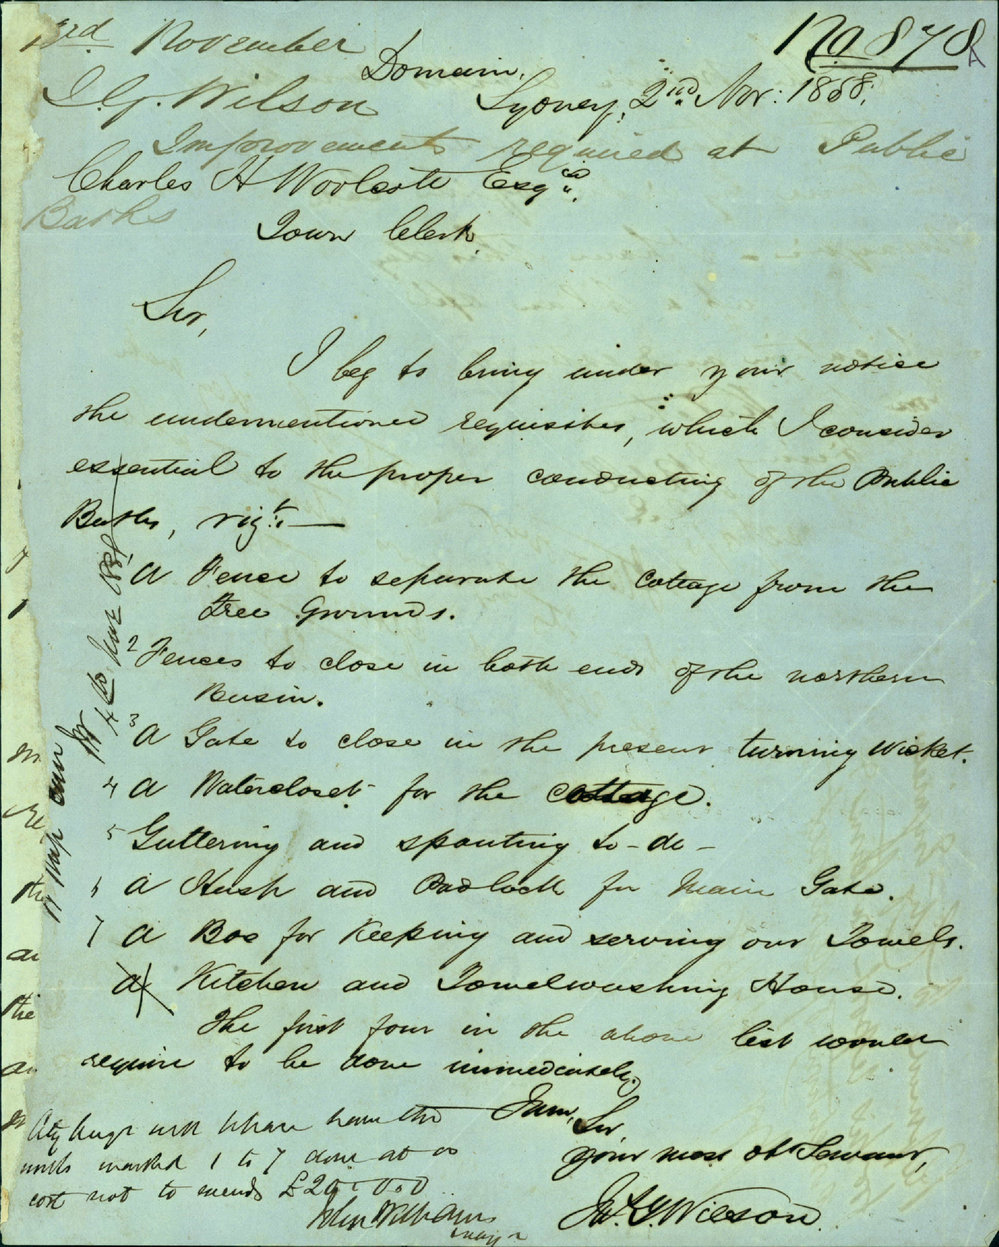 3rd November
No 878
A
Domain,
J. G. Wilson
Sydney, 2nd Nov: 1868.
Improvements required at Public
Charles H Woolcott Esqre.
Baths
Town Clerk
Sir,
I beg to bring under your notice
the undermentioned requisites, which I consider
essential to the proper conducting of the Public
Baths, vizt:—
1 A Fence to separate the Cottage from the
tree Grounds.
2 Fences to close in both ends of the northern
Basin.
3 A Gate to close in the present turning Wicket.
4 A Watercloset for the cottage.
5 Guttering and spouting to - do -
6 A Hasp and Padlock for Main Gate.
7 A Box for Keeping and serving our Towels.
A Kitchen and Towelwashing House.
The first four in the above list would
require to be done immediately.
I am, Sir,
your most obt Servant,
Jas. G. Wilson
City Engr will please have the
works marked 1 to 7 done at
cost not to exceed £20.0.0
John Williams
Mayor